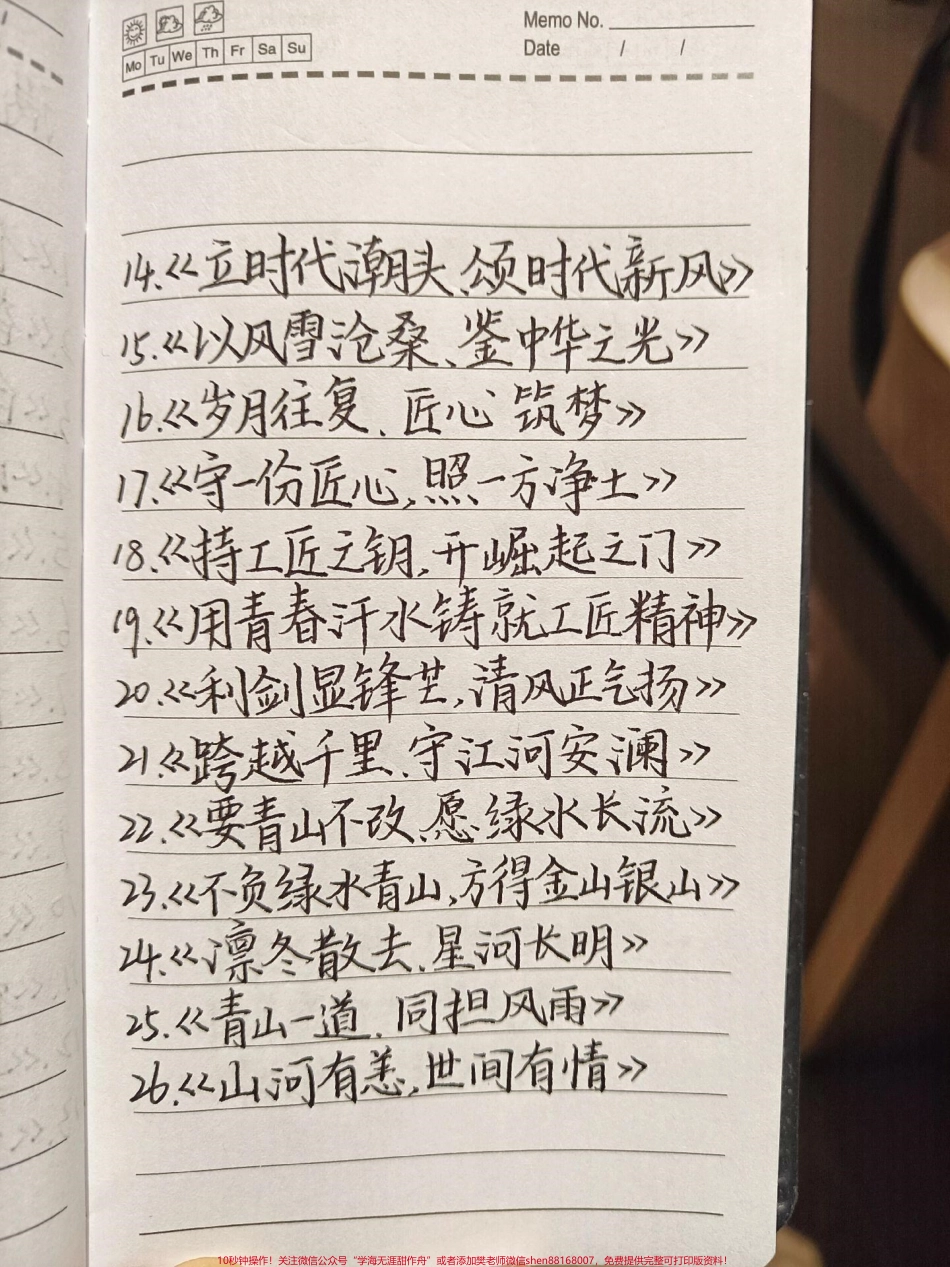 Memo No.
Mo Tu We Th Fr Sa Su
Date / /
14.《立时代潮头、颂时代新风》
15.《以风雪沧桑、鉴中华之光》
16.《岁月往复、匠心筑梦》
17.《守一份匠心,照一方净土》
18.《持工匠之钥,开崛起之门》
19.《用青春汗水铸就工匠精神》
20.《利剑显锋芒,清风正气扬》
21.《跨越千里、守江河安澜》
22.《要青山不改、愿绿水长流》
23.《不负绿水青山,方得金山银山》
24.《凛冬散去、星河长明》
25.《青山一道、同担风雨》
26.《山河有恙,世间有情》
10秒钟操作!关注微信公众号“学海无涯甜作舟”或者添加樊老师微信shen88168007,免费提供完整可打印版资料!